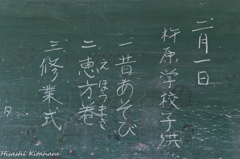 二月一日
杵原学校子供
一昔あそび
二恵方巻
えほうまき
三修業式
Hisashi Kitahara